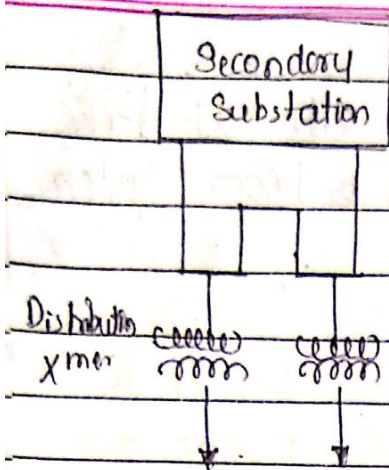 Secondary
Substation
Distributin
Xmer